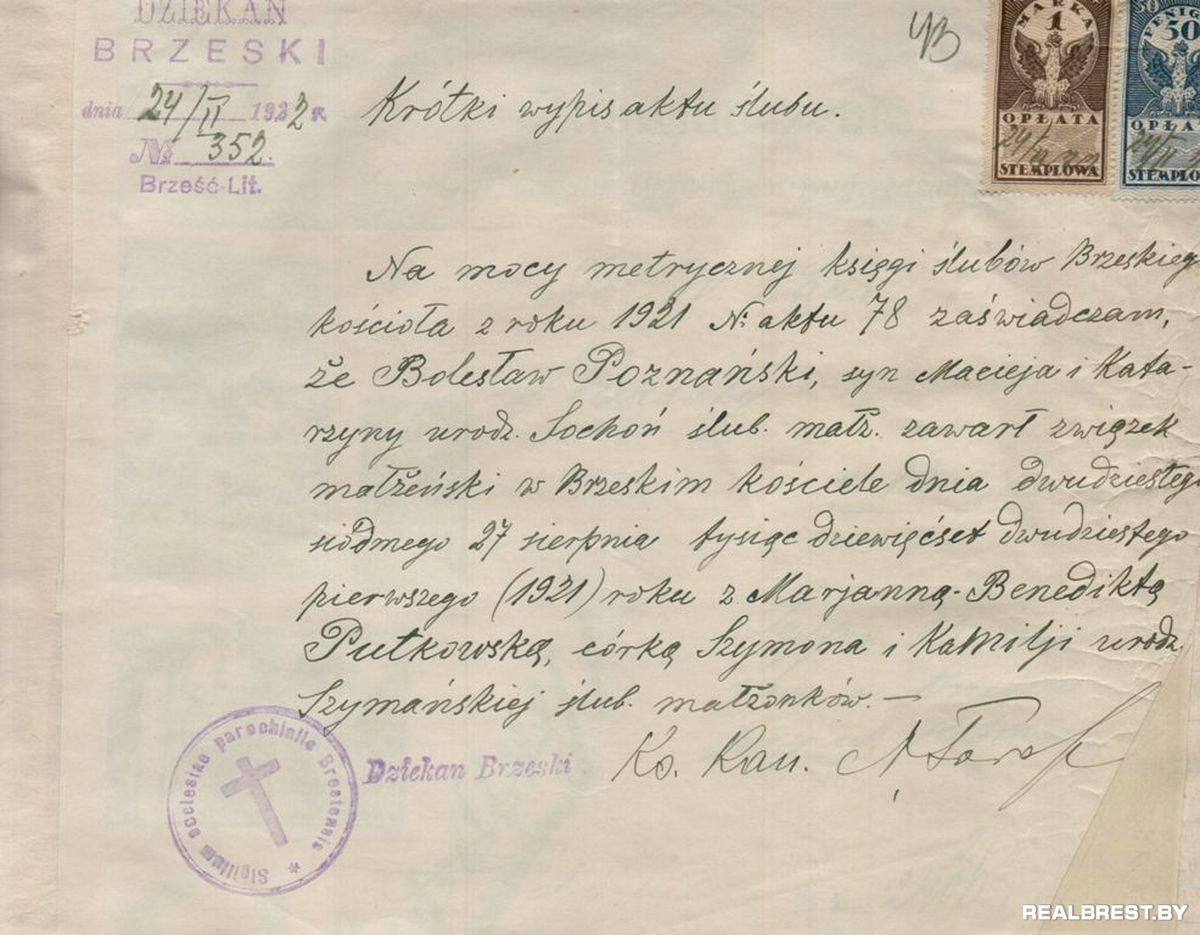 DZIEKAN
BRZESKI
dnia 24/II 1922 r.
№ 352.
Brześć-Lit.
MARKA
1
OPŁATA
STEMPLOWA
50 FENIG
50
OPŁATA
STEMPLOWA
Krótki wypis aktu ślubu.
Na mocy metrycznej księgi ślubów Brzeskiego
kościoła z roku 1921 N: aktu 78 zaświadczam,
że Bolesław Poznański, syn Macieja i Kata-
rzyny urodz. Sochoń ślub. małż. zawarł związek
małżeński w Brzeskim kościele dnia dwudziestego
siódmego 27 sierpnia tysiąc dziewięćset dwudziestego
pierwszego (1921) roku z Marjanną-Benediktą
Putkowską, córką Szymona i Kamilji urodz.
Szymańskiej ślub. małżonków. —
Dziekan Brzeski Ks. Kan.
Sigillum ecclesiae parochialis Brestensis *
REALBREST.BY